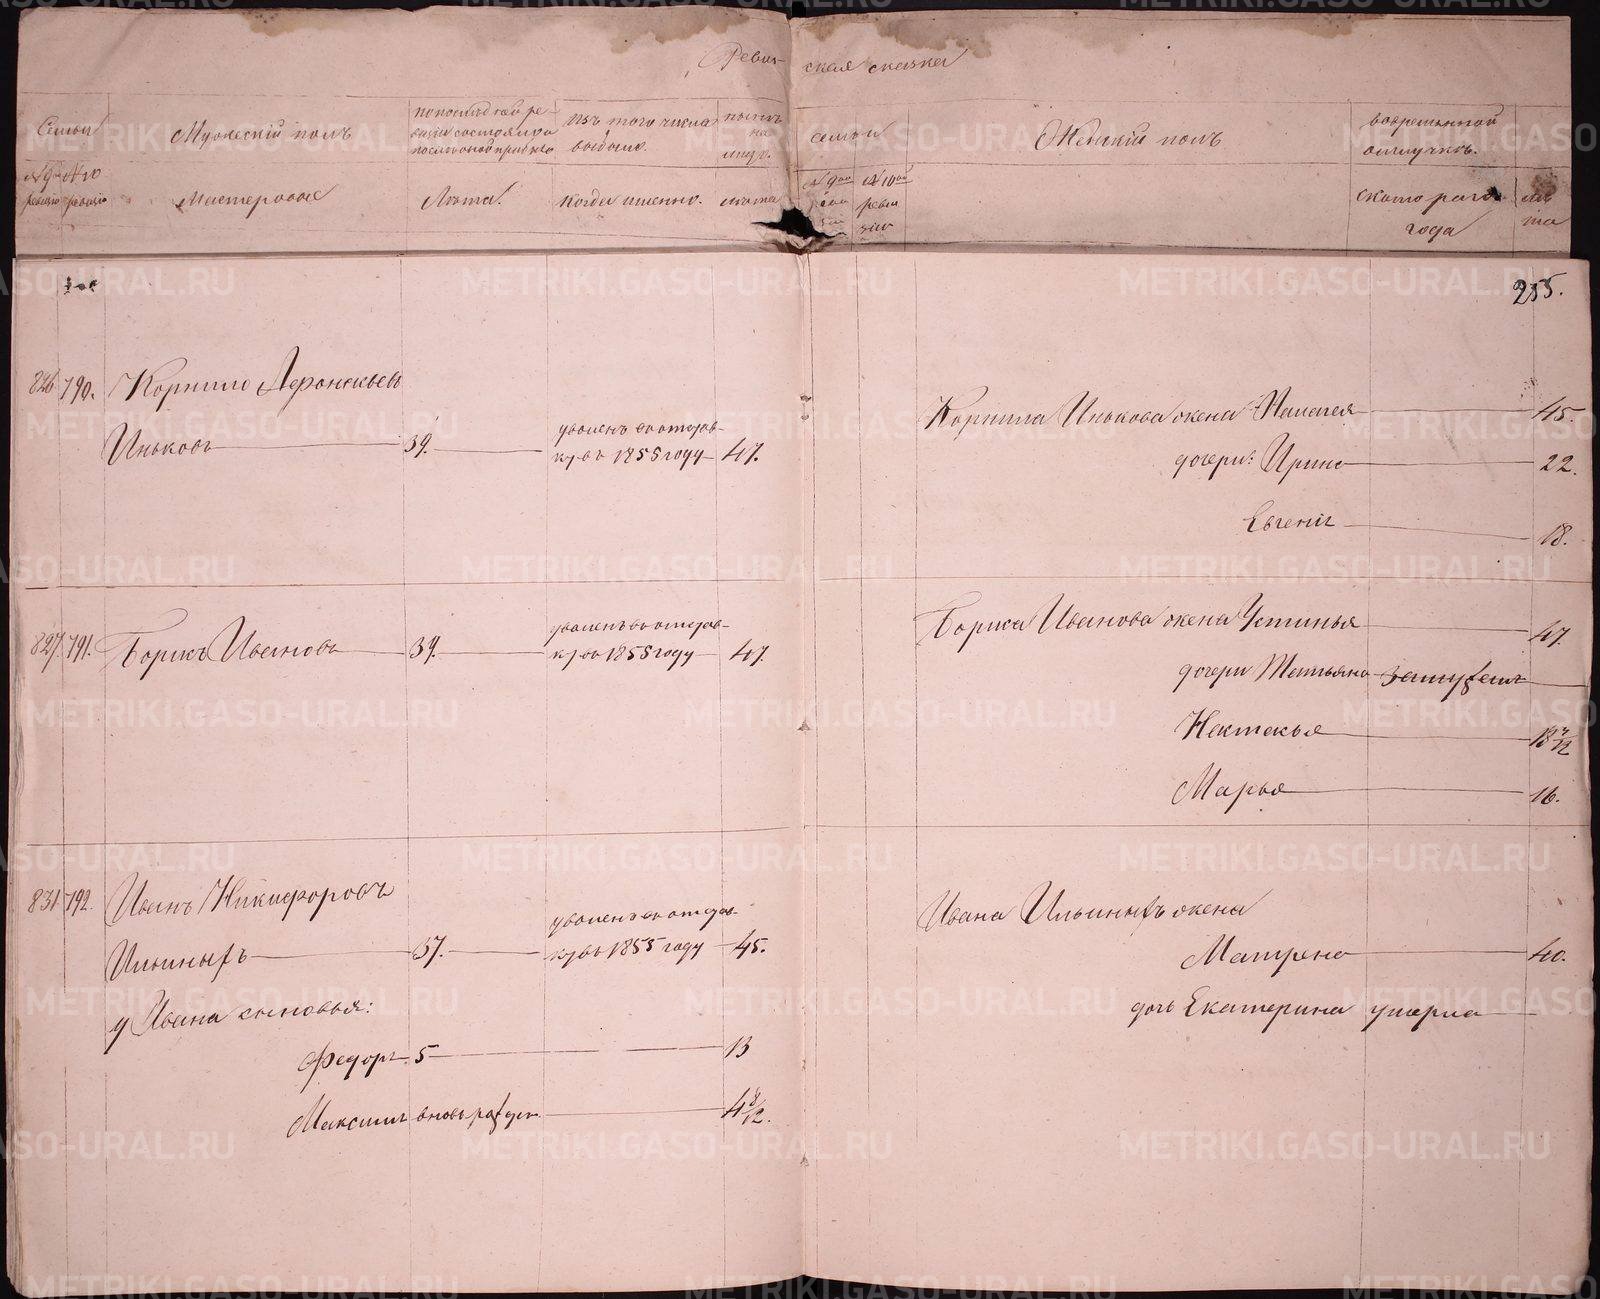 Ревиж- ская сказка
Семьи
Мужескій полъ
по последней ре-
визіи состояло и
после оной прибыло
изъ того числа
выбыло.
ныне
на
лицо.
семьи
Женскій полъ
во временной
отлучке.
№ 9ой ревизіи
№ 10 ревизіи
Мастеровые
Лета.
когда именно.
лета
№ 9ой реви зіи
№ 10ой ревизіи
с котораго
года
лета
255.
826 790. Корнило Афонасьевъ
Иньковъ 39. уволенъ въ отстав-
ку въ 1855 году 47.
Корнила Инькова жена Пелагея 45.
дочери: Ирина 22.
Евгенія 18.
827. 791. Борисъ Ивановъ 39. уволенъ въ отстав-
ку въ 1855 году 47.
Бориса Иванова жена Устинья 47.
дочери Татьяна замужемъ
Настасья
Марья 16.
831 792. Иванъ Никифоровъ
Ильиныхъ 37. уволенъ въ отстав-
ку въ 1855 году 45.
у Ивана сыновья:
Федоръ 5 13
Максимъ вновь рожден
Ивана Ильиныхъ жена
Матрена 40.
дочь Екатерина умерла
METRIKI.GASO-URAL.RU